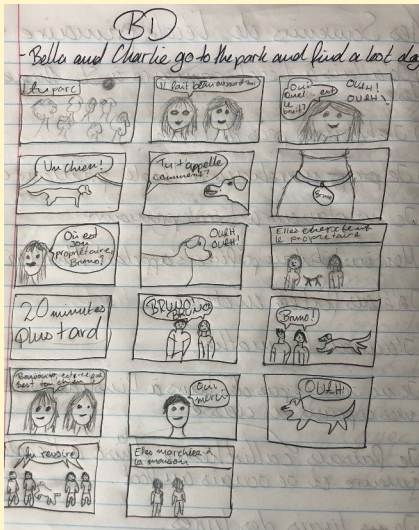 BD
- Bella and Charlie go to the park and find a lost dog
Au parc
Il fait beau aujourd'hui
Oui
Quel est
le
bruit?
OUAH!
OUAH!
Un chien!
Tu t'appelle
comment?
Bruno
Où est
son
propriétaire
Bruno?
OUAH
OUAH!
Elles cherchent
le propriétaire
20 minutes
plus tard
BRUNO!
BRUNO
Bruno!
Bonjour, est-ce que
est ton chien
Oui,
merci
OUAH!
Au revoire
Elles marchiez à
la maison